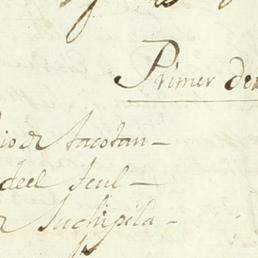 Primer de
io de Tacotan
de el Teul
Juchipila